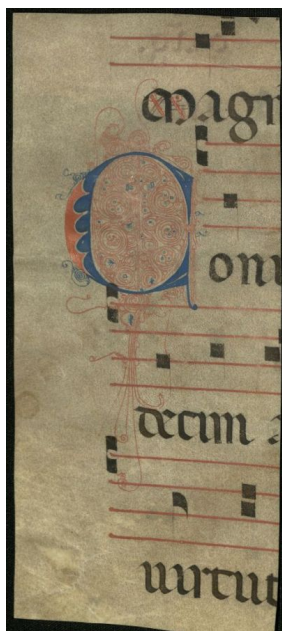 magn
Conu
decim a
uirtut